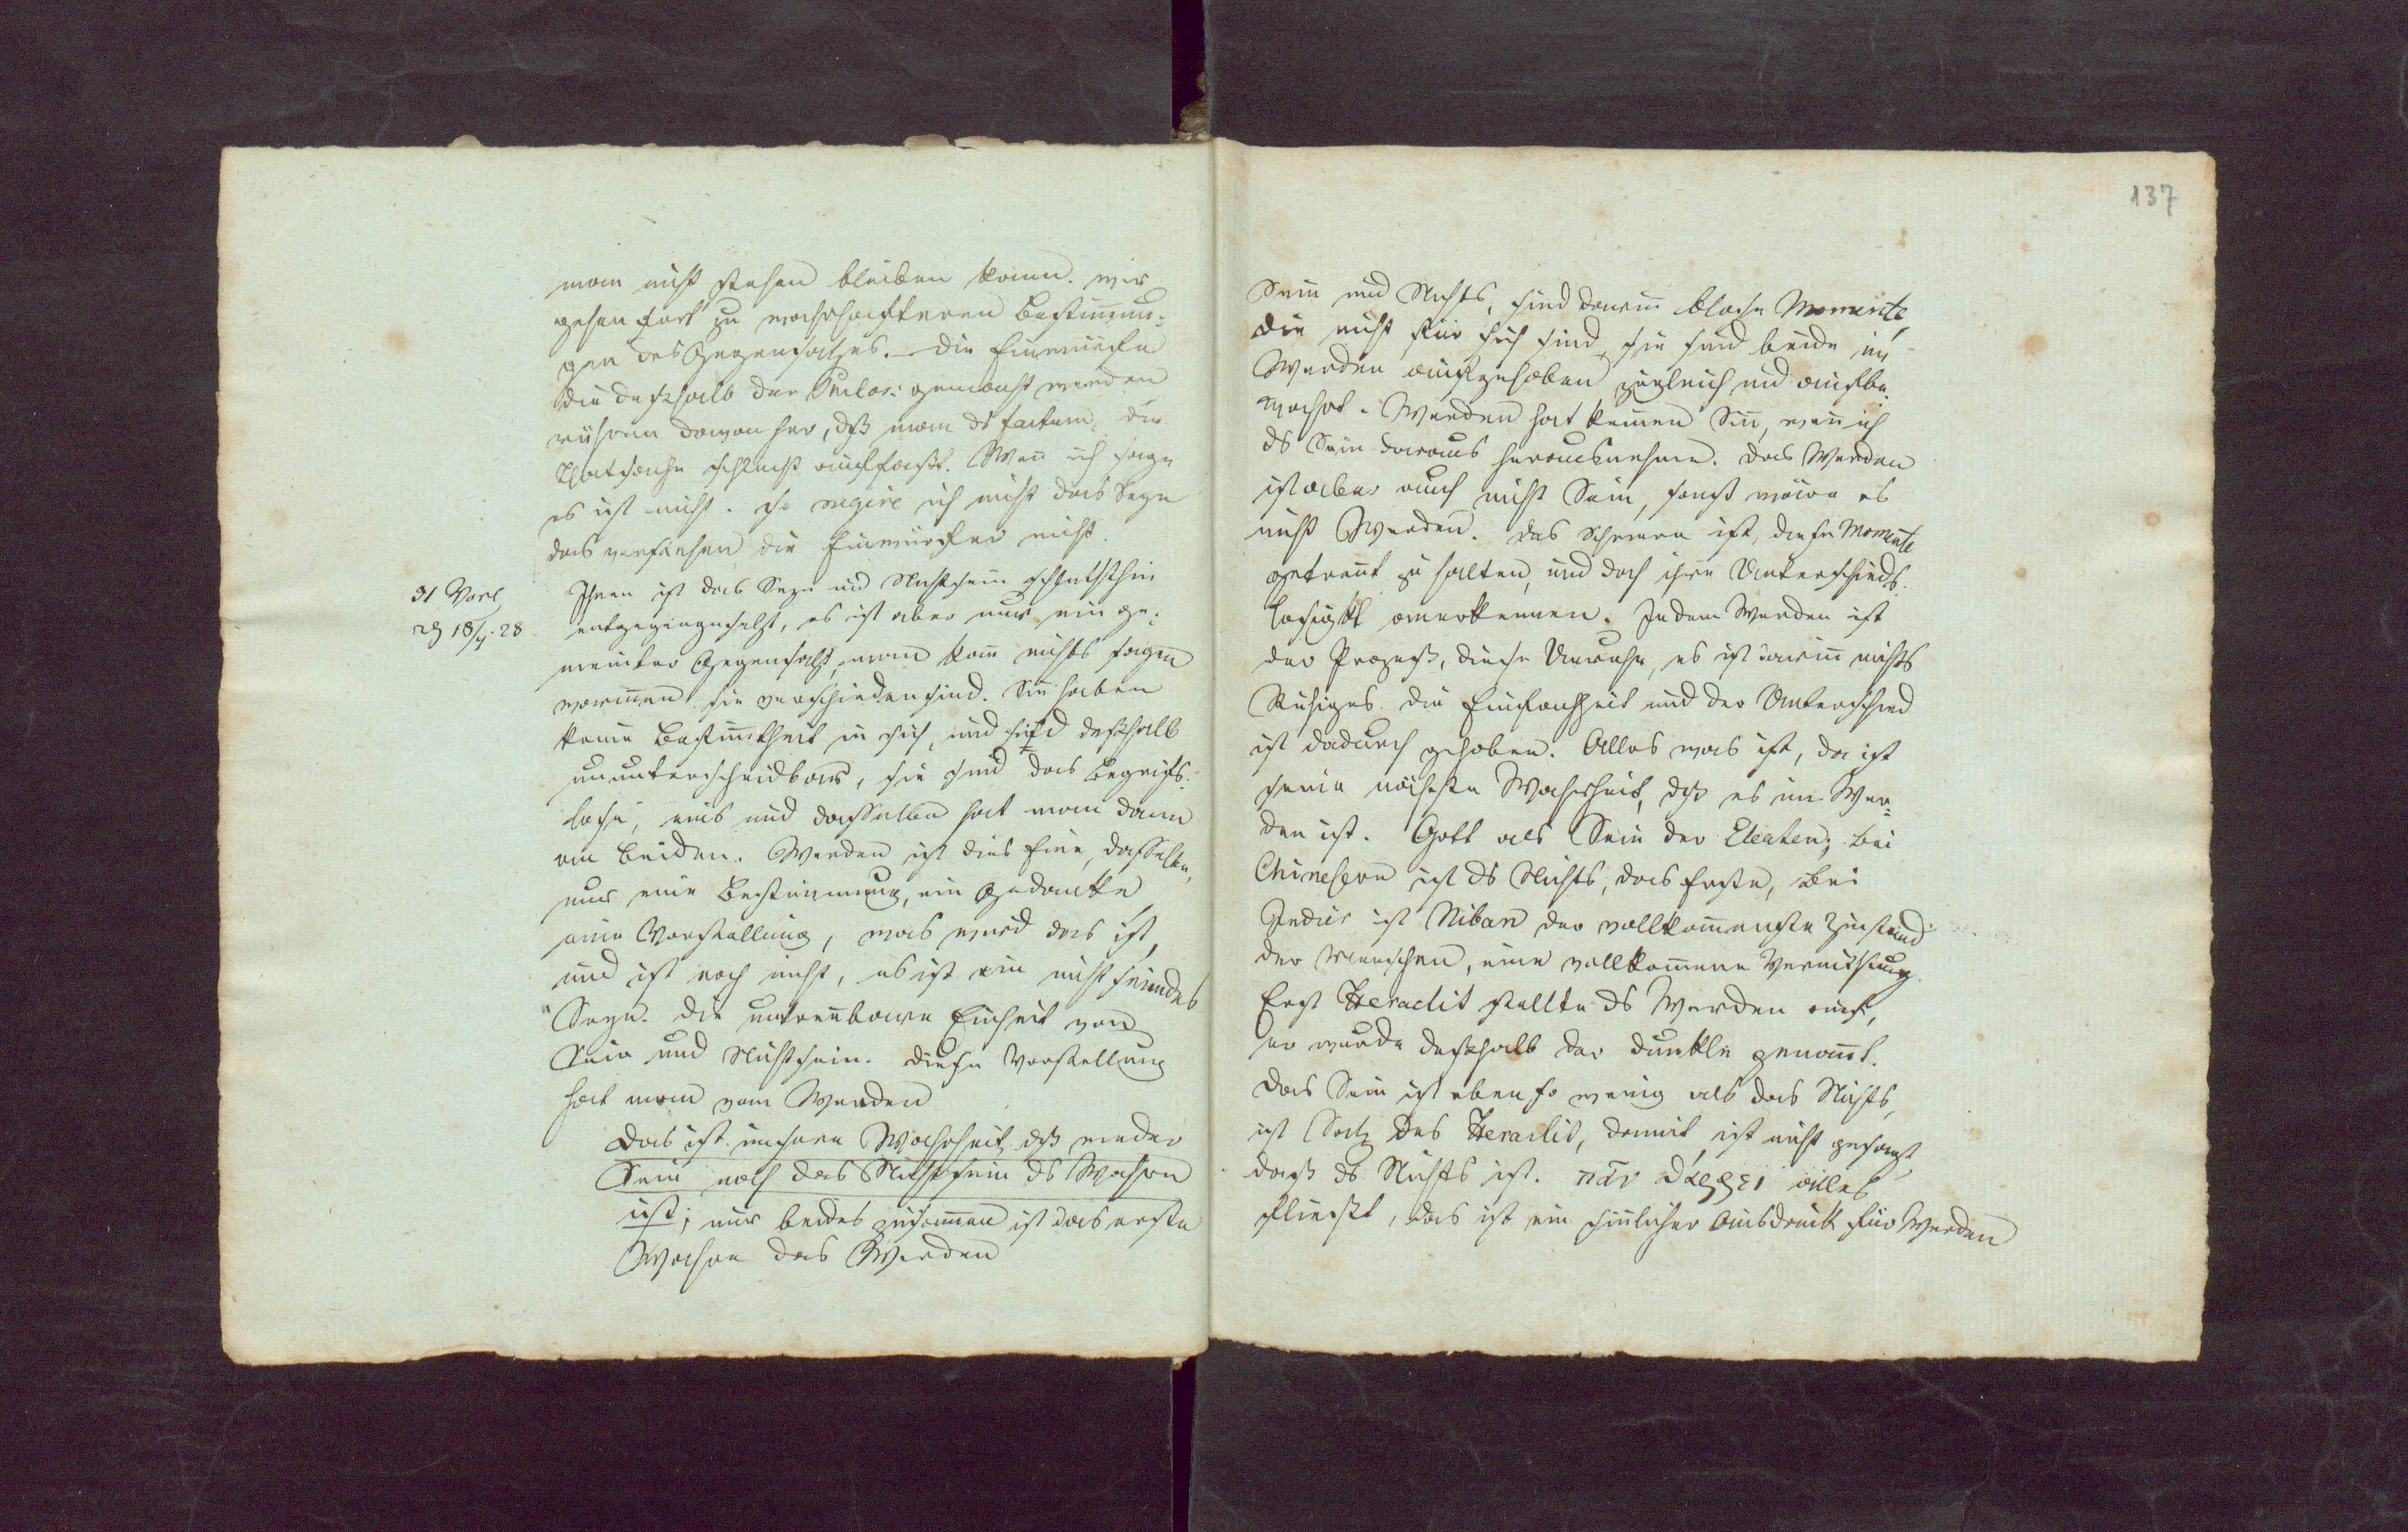 man nicht stehen bleiben kann. wir
gehen fort zu wahrhafteren Bestim̅un-
gen des Gegensatzes. – Die Einwürfe
die deßhalb der Philos: gemacht werden
rühren davon her, dß man ds factum, die
Thatsache schlecht auffaßt. Wen̅ ich sage
es ist nicht. so negire ich nicht das Seyn
das verstehen die Einwürfler nicht.
31 Vorl
18/7. 28
Ihnen ist das Seyn und Nichtsein schlechthin
entgegengesetzt, es ist aber nur ein ge-
meinter Gegensatz, man kan̅ nichts sagen
worinnen sie verschieden sind. Sie haben
keine Bestim̅theit in sich, und sind deßhalb
ununterscheidbar, sie sind das Begriffs-
lose, eins und dasselbe hat man dann
an beiden. Werden ist dies Eine, dasselbe,
nur eine Bestimmung, ein Gedanke
eine Vorstellung, was wird das ist,
und ist noch nicht, es ist ein nicht seiendes
Seyn. Die untren̅bare Einheit von
Sein und Nichtsein. Diese Vorstellung
hat man vom Werden
Das ist unsere Wahrheit dß weder
Sein noch das Nichtsein ds Wahre
ist; nur beides zusam̅en ist das erste
Wahre das Werden
137
Sein und Nichts, sind darin̅ blose Momente,
die nicht für sich sind, sie sind beide im
Werden aufgehoben zugleich und aufbe-
wahrt. Werden hat keinen Sin̅, wen̅ ich
ds Sein daraus herausnehme. Das Werden
ist aber auch nicht Sein, sonst wäre es
nicht Werden. Das Schwere ist, diese Momente
getren̅t zu halten, und doch ihre Unterschieds-
losigkt anerkennen. In dem Werden ist
der Prozeß, diese Unruhe, es ist darin̅ nichts
Ruhiges. Die Einfachheit und der Unterschied
ist dadurch gehoben. Alles was ist, da ist
seine nächste Wahrheit, dß es im Wer-
den ist. Gott als Sein der Eleaten; bei
Chinesern ist ds Nichts, das Erste, bei
Indier ist Niban der vollkom̅enste Zustand
der Menschen, eine vollkom̅ene Vernichtung.
Erst Heraclit stellte ds Werden auf,
er wurde deßhalb der dunkle genan̅t.
Das Sein ist eben so wenig als das Nichts,
ist Satz des Heraclit, damit ist nicht gesagt
daß ds Nichts ist. παν διαρρει alles
fliesst, das ist ein sin̅licher Ausdruck für Werden